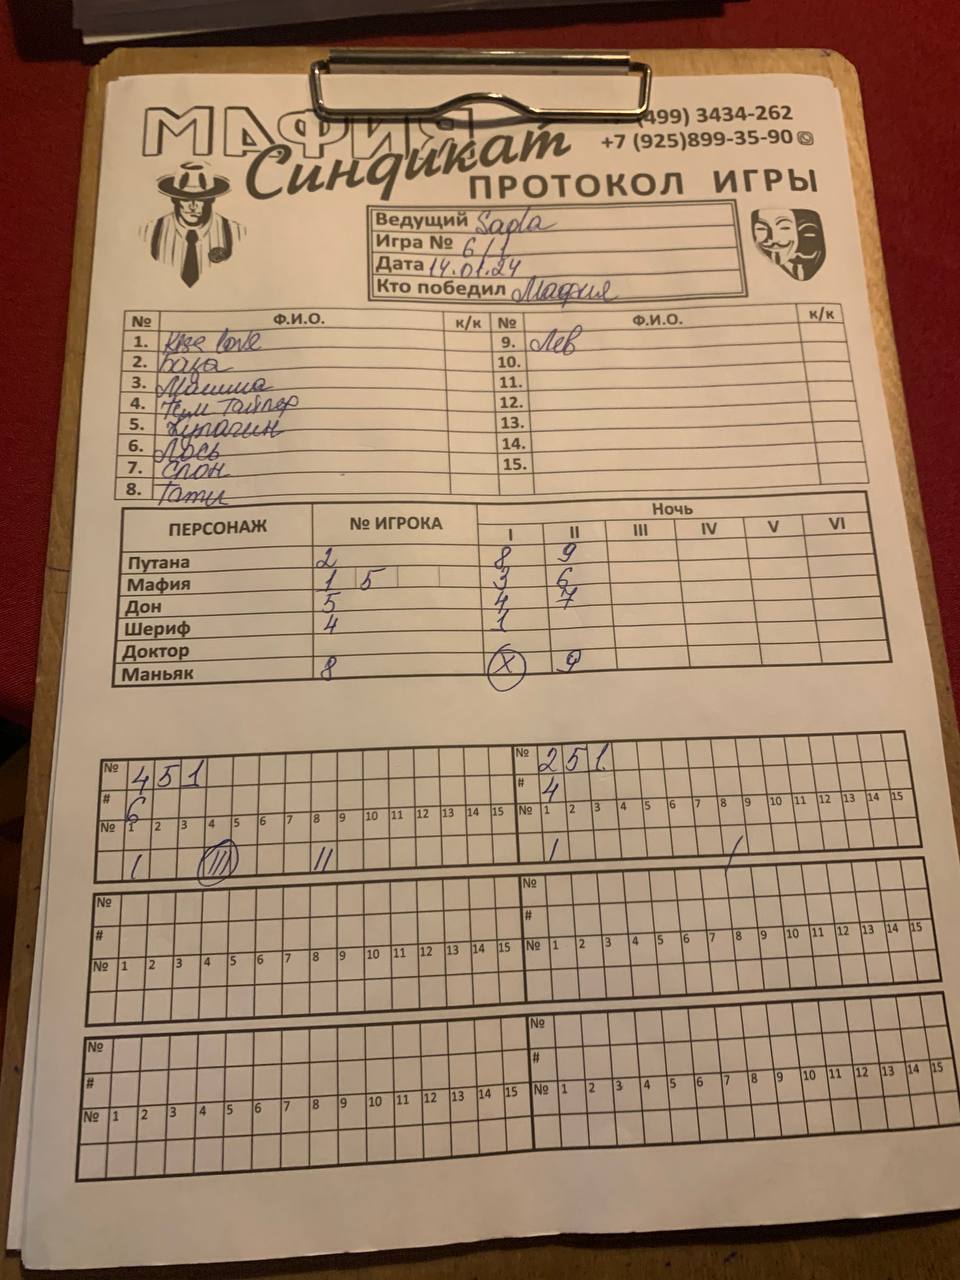 МАФИЯ
Синдикат
(499) 3434-262
+7 (925)899-35-90
ПРОТОКОЛ ИГРЫ
Ведущий Sagla
Игра № 6/1
Дата 14.01.24
Кто победил Мафия
№ Ф.И.О. к/к № Ф.И.О. к/к
1. love 9. Лев
2. 10.
3. Машина 11.
4. Тайлер 12.
5. 13.
6. Лось 14.
7. Слон 15.
8. Тати
ПЕРСОНАЖ № ИГРОКА Ночь
I II III IV V VI
Путана 2 8 9
Мафия 1 5 3 6
Дон 5 4 7
Шериф 4 1
Доктор
Маньяк 8 X 9
№ 4 5 1 № 2 5 1
# 6 # 4
№ 1 2 3 4 5 6 7 8 9 10 11 12 13 14 15 № 1 2 3 4 5 6 7 8 9 10 11 12 13 14 15
I III II I I
№ №
# #
№ 1 2 3 4 5 6 7 8 9 10 11 12 13 14 15 № 1 2 3 4 5 6 7 8 9 10 11 12 13 14 15
№ №
# #
№ 1 2 3 4 5 6 7 8 9 10 11 12 13 14 15 № 1 2 3 4 5 6 7 8 9 10 11 12 13 14 15